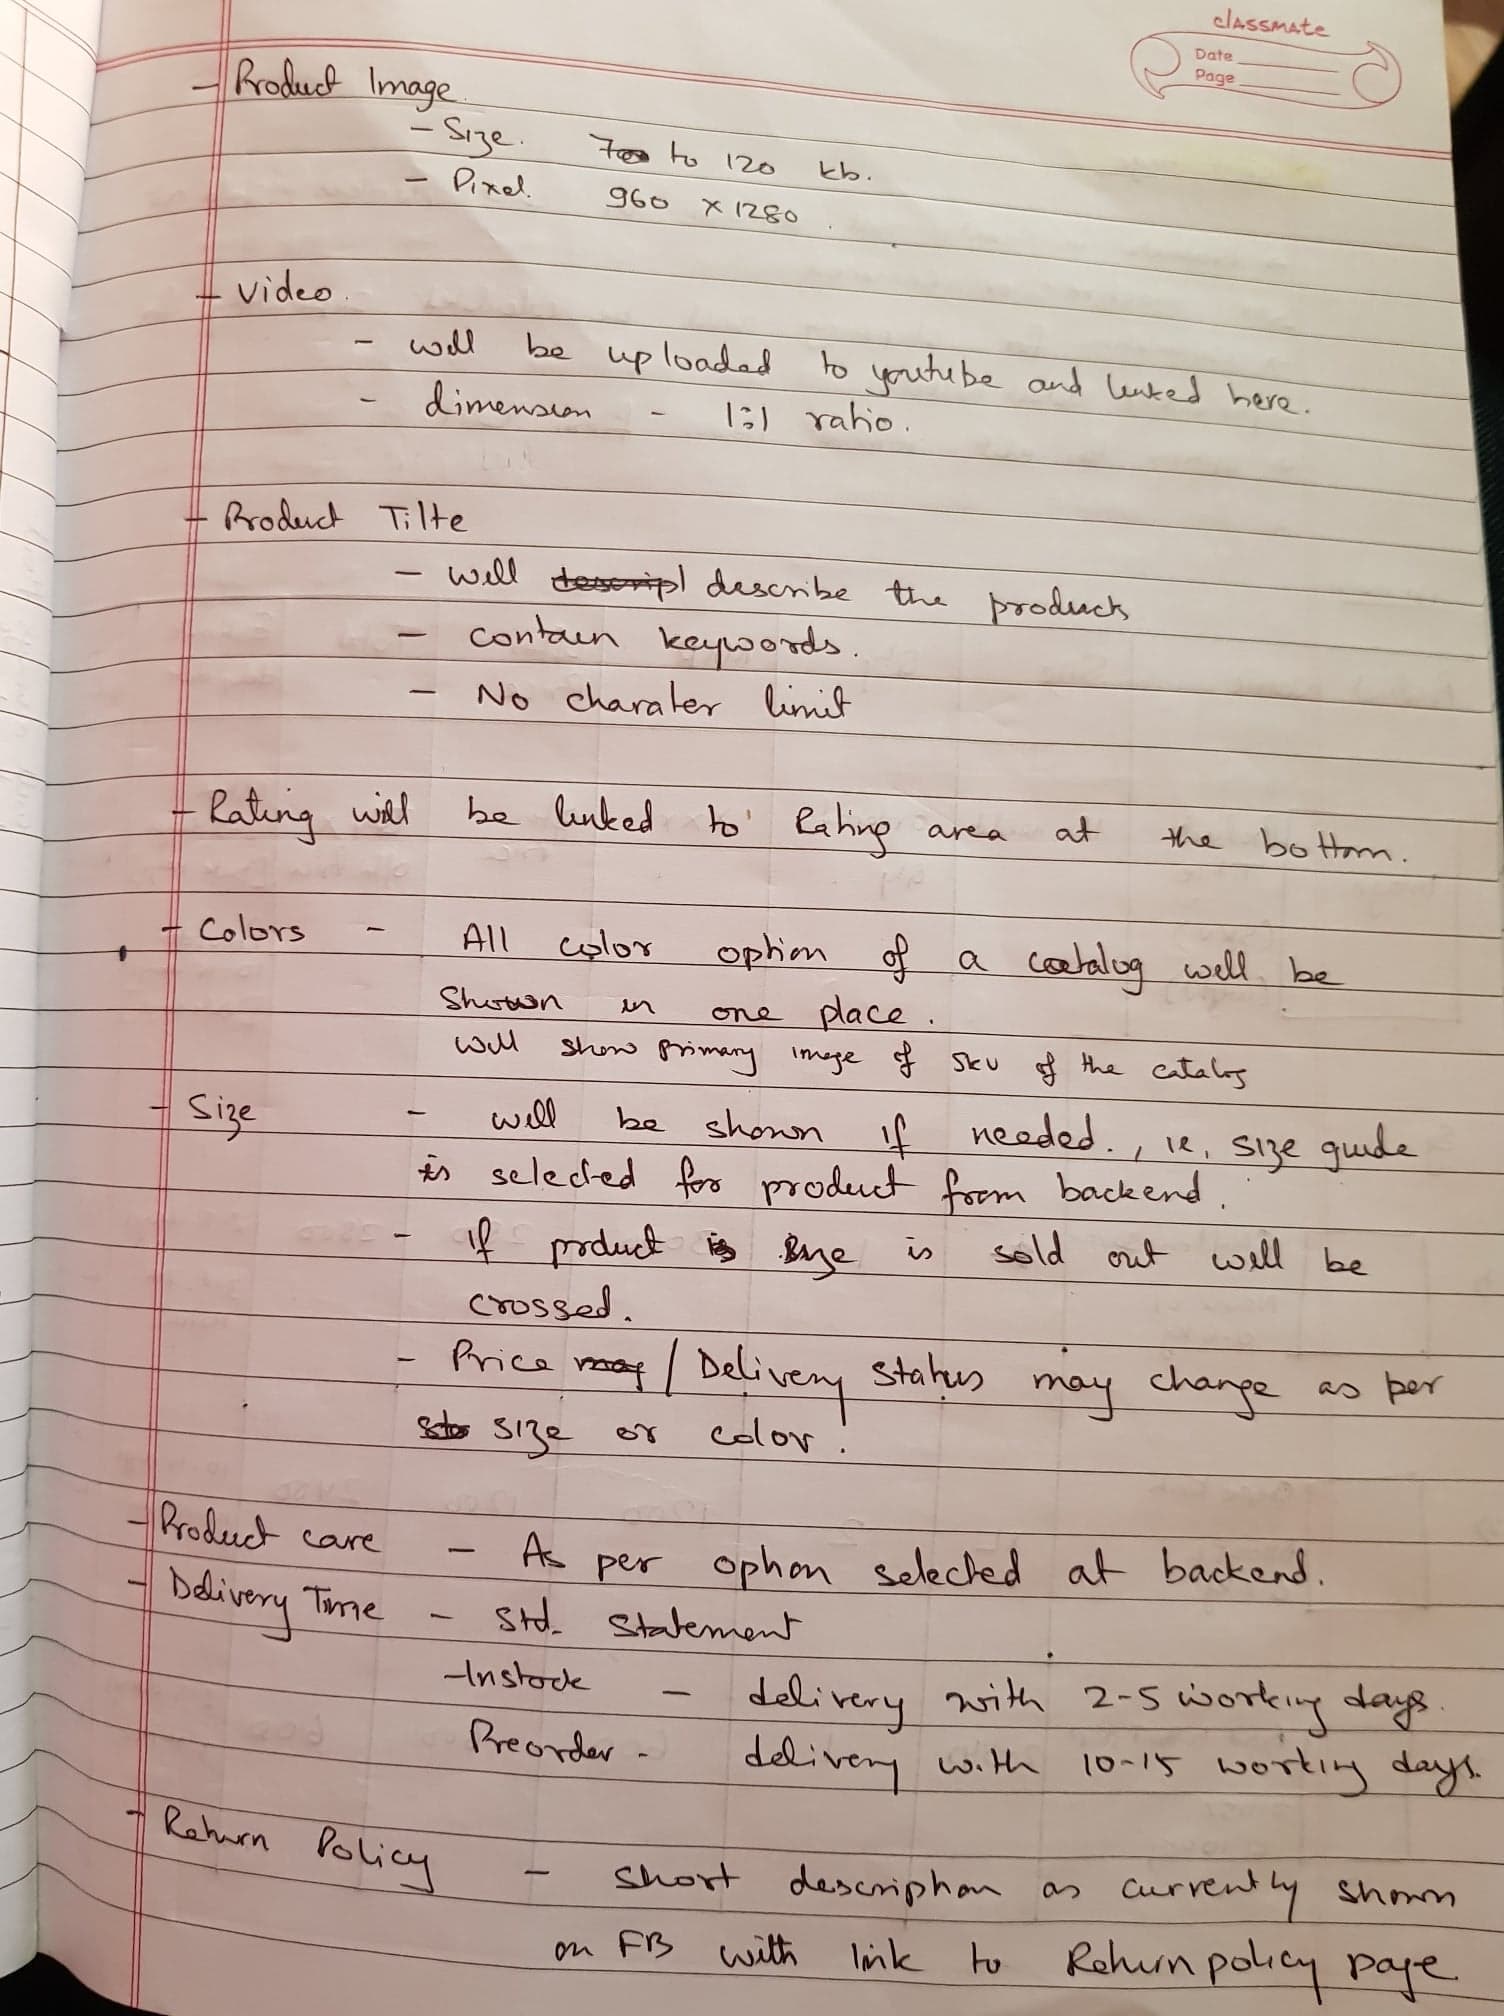 classmate
Date
Page
- Product Image.
- Size. 700 to 120 kb.
- Pixel. 960 x 1280.
- Video.
- will be uploaded to youtube and linked here.
- dimension - 1:1 ratio.
- Product Tilte
- will descripl describe the products
- contain keywords.
- No charater limit
- Rating will be linked to Rating area at the bottom.
- Colors - All color option of a catalog will be
shown in one place.
will show primary image of SKU of the catalog
- Size - will be shown if needed., ie, size guide
is selected for product from backend.
- if prduct is size is sold out will be
crossed.
- Price may / Delivery Status may change as per
sto size or color.
- Product care - As per option selected at backend.
- Delivery Time - Std. Statement
- Instock - delivery with 2-5 working days.
Preorder - delivery with 10-15 working days.
- Return Policy - short description as currently shown
on FB with link to Return policy page